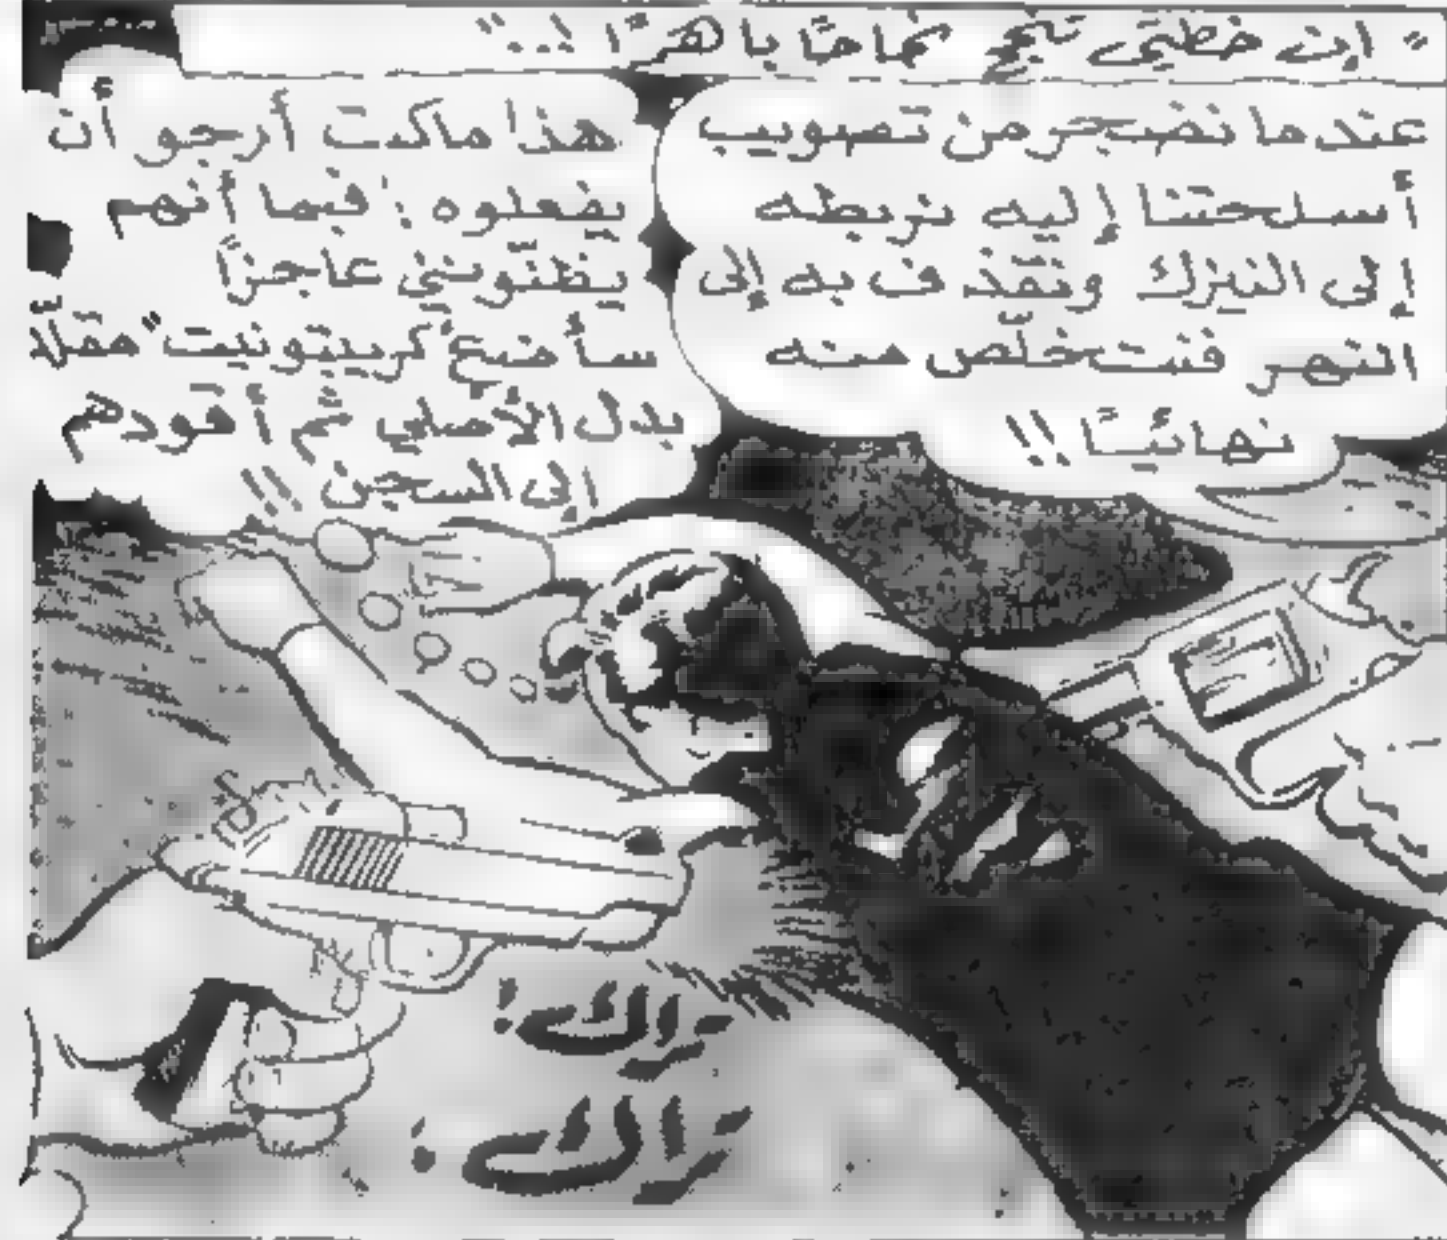 " إن خطتي تنجح نجاحًا باهرًا !.. "
عندما نضجر من تصويب
أسلحتنا إليه نربطه
إلى النيزك ونقذف به إلى
النهر فنتخلّص منه
نهائيًا !!
هذا ما كنت أرجو أن
يفعلوه ! فبما أنهم
يظنّونني عاجزًا
سأضع "كريبتونيت" مقلّدًا
بدل الأصلي ثم أقودهم
إلى السجن !!
تراك !
تراك !